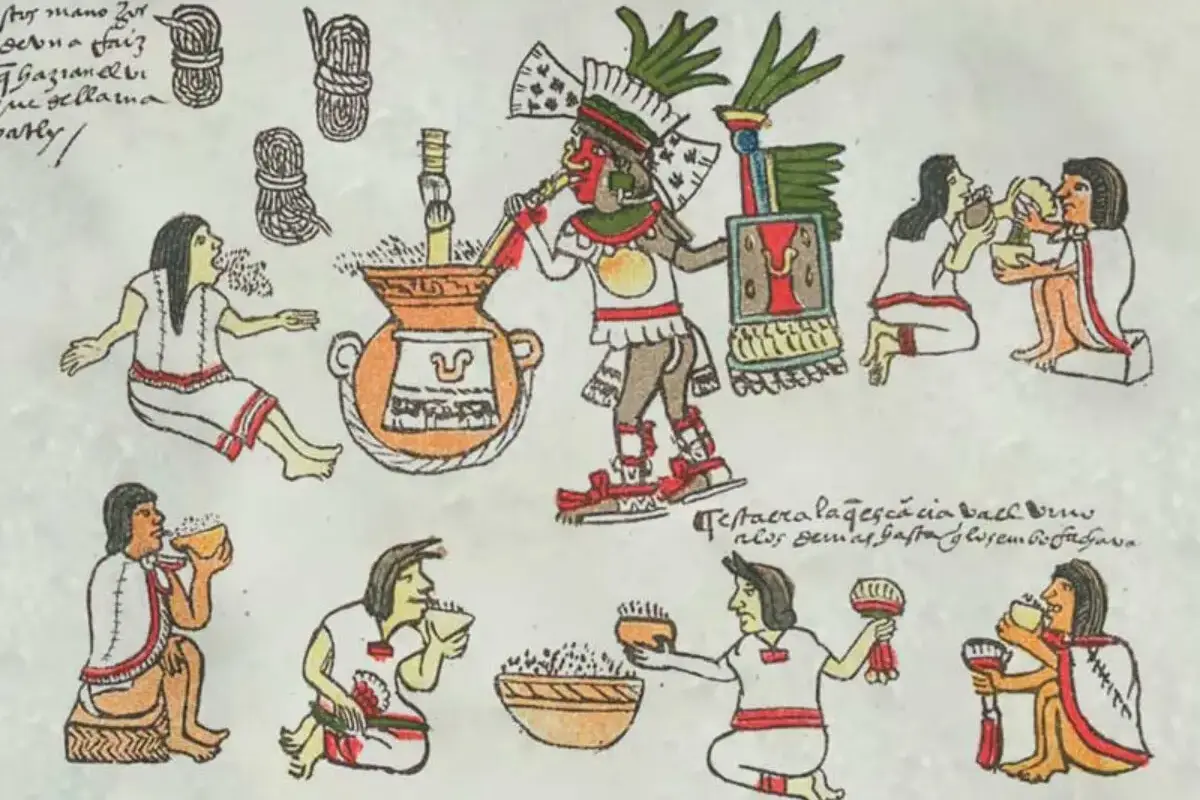 stos mano jos
de vna Raiz
q̄ hazian el vi
ue se llama
patly /
¶ esta era la q̄ escācia va el vino
a los demas hasta q̄ los emboRachava